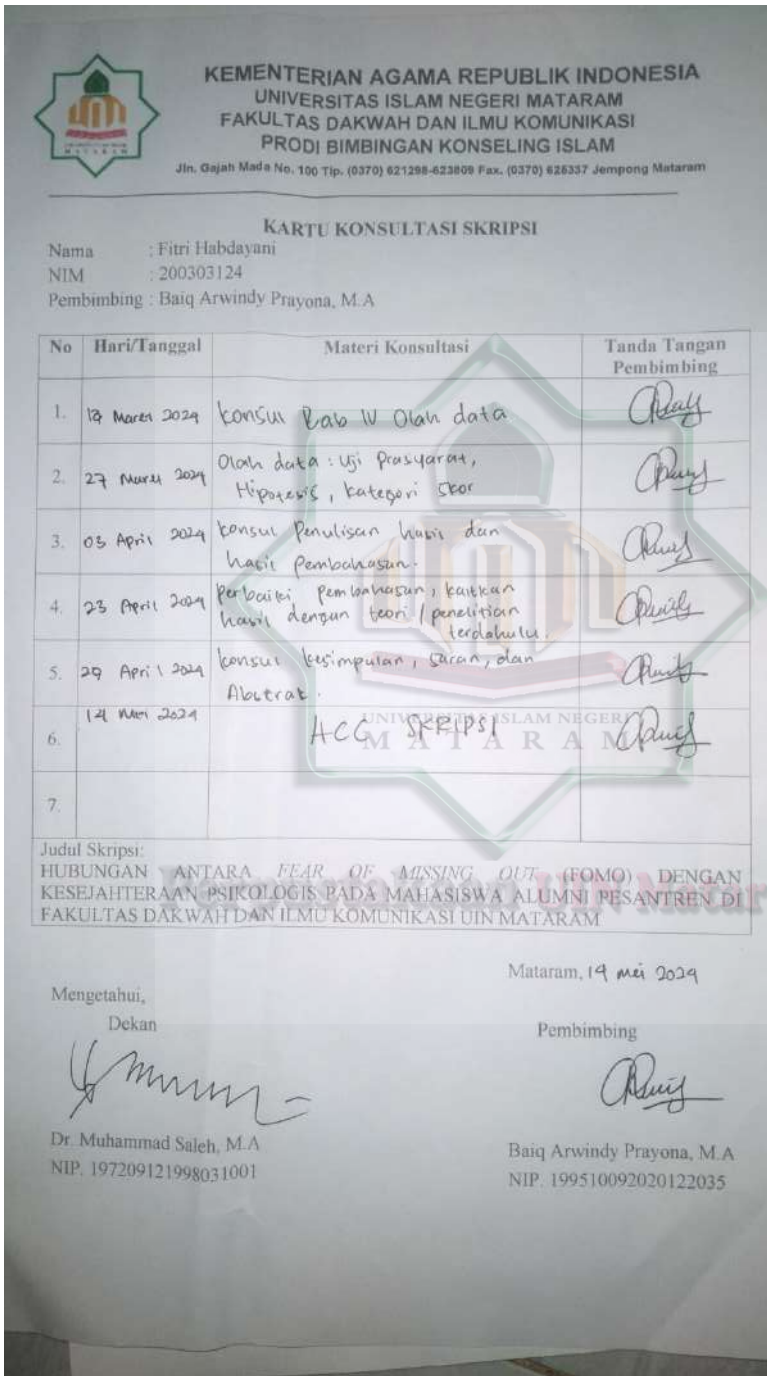 KEMENTERIAN AGAMA REPUBLIK INDONESIA
UNIVERSITAS ISLAM NEGERI MATARAM
FAKULTAS DAKWAH DAN ILMU KOMUNIKASI
PRODI BIMBINGAN KONSELING ISLAM
Jln. Gajah Mada No. 100 Tlp. (0370) 621298-623809 Fax. (0370) 625337 Jempong Mataram
KARTU KONSULTASI SKRIPSI
Nama : Fitri Habdayani
NIM : 200303124
Pembimbing : Baiq Arwindy Prayona, M.A
No Hari/Tanggal Materi Konsultasi Tanda Tangan
Pembimbing
1. Maret 2024 konsul Bab IV Olah data
2. 27 Maret 2024 Olah data : Uji Prasyarat,
Hipotesis, kategori skor
3. 03 April 2024 konsul Penulisan hasil dan
hasil Pembahasan.
4. 23 April 2024 Perbaiki Pembahasan, kaitkan
hasil dengan teori / penelitian
terdahulu.
5. 29 April 2024 konsul kesimpulan, saran, dan
Abstrak.
14 Mei 2024
6. ACC SKRIPSI
UNIVERSITAS ISLAM NEGERI
MATARAM
7.
Judul Skripsi:
HUBUNGAN ANTARA FEAR OF MISSING OUT (FOMO) DENGAN
KESEJAHTERAAN PSIKOLOGIS PADA MAHASISWA ALUMNI PESANTREN DI
FAKULTAS DAKWAH DAN ILMU KOMUNIKASI UIN MATARAM
UIN Matar
Mataram, 14 mei 2024
Mengetahui,
Dekan
Pembimbing
Dr. Muhammad Saleh, M.A
NIP. 197209121998031001
Baiq Arwindy Prayona, M.A
NIP. 199510092020122035